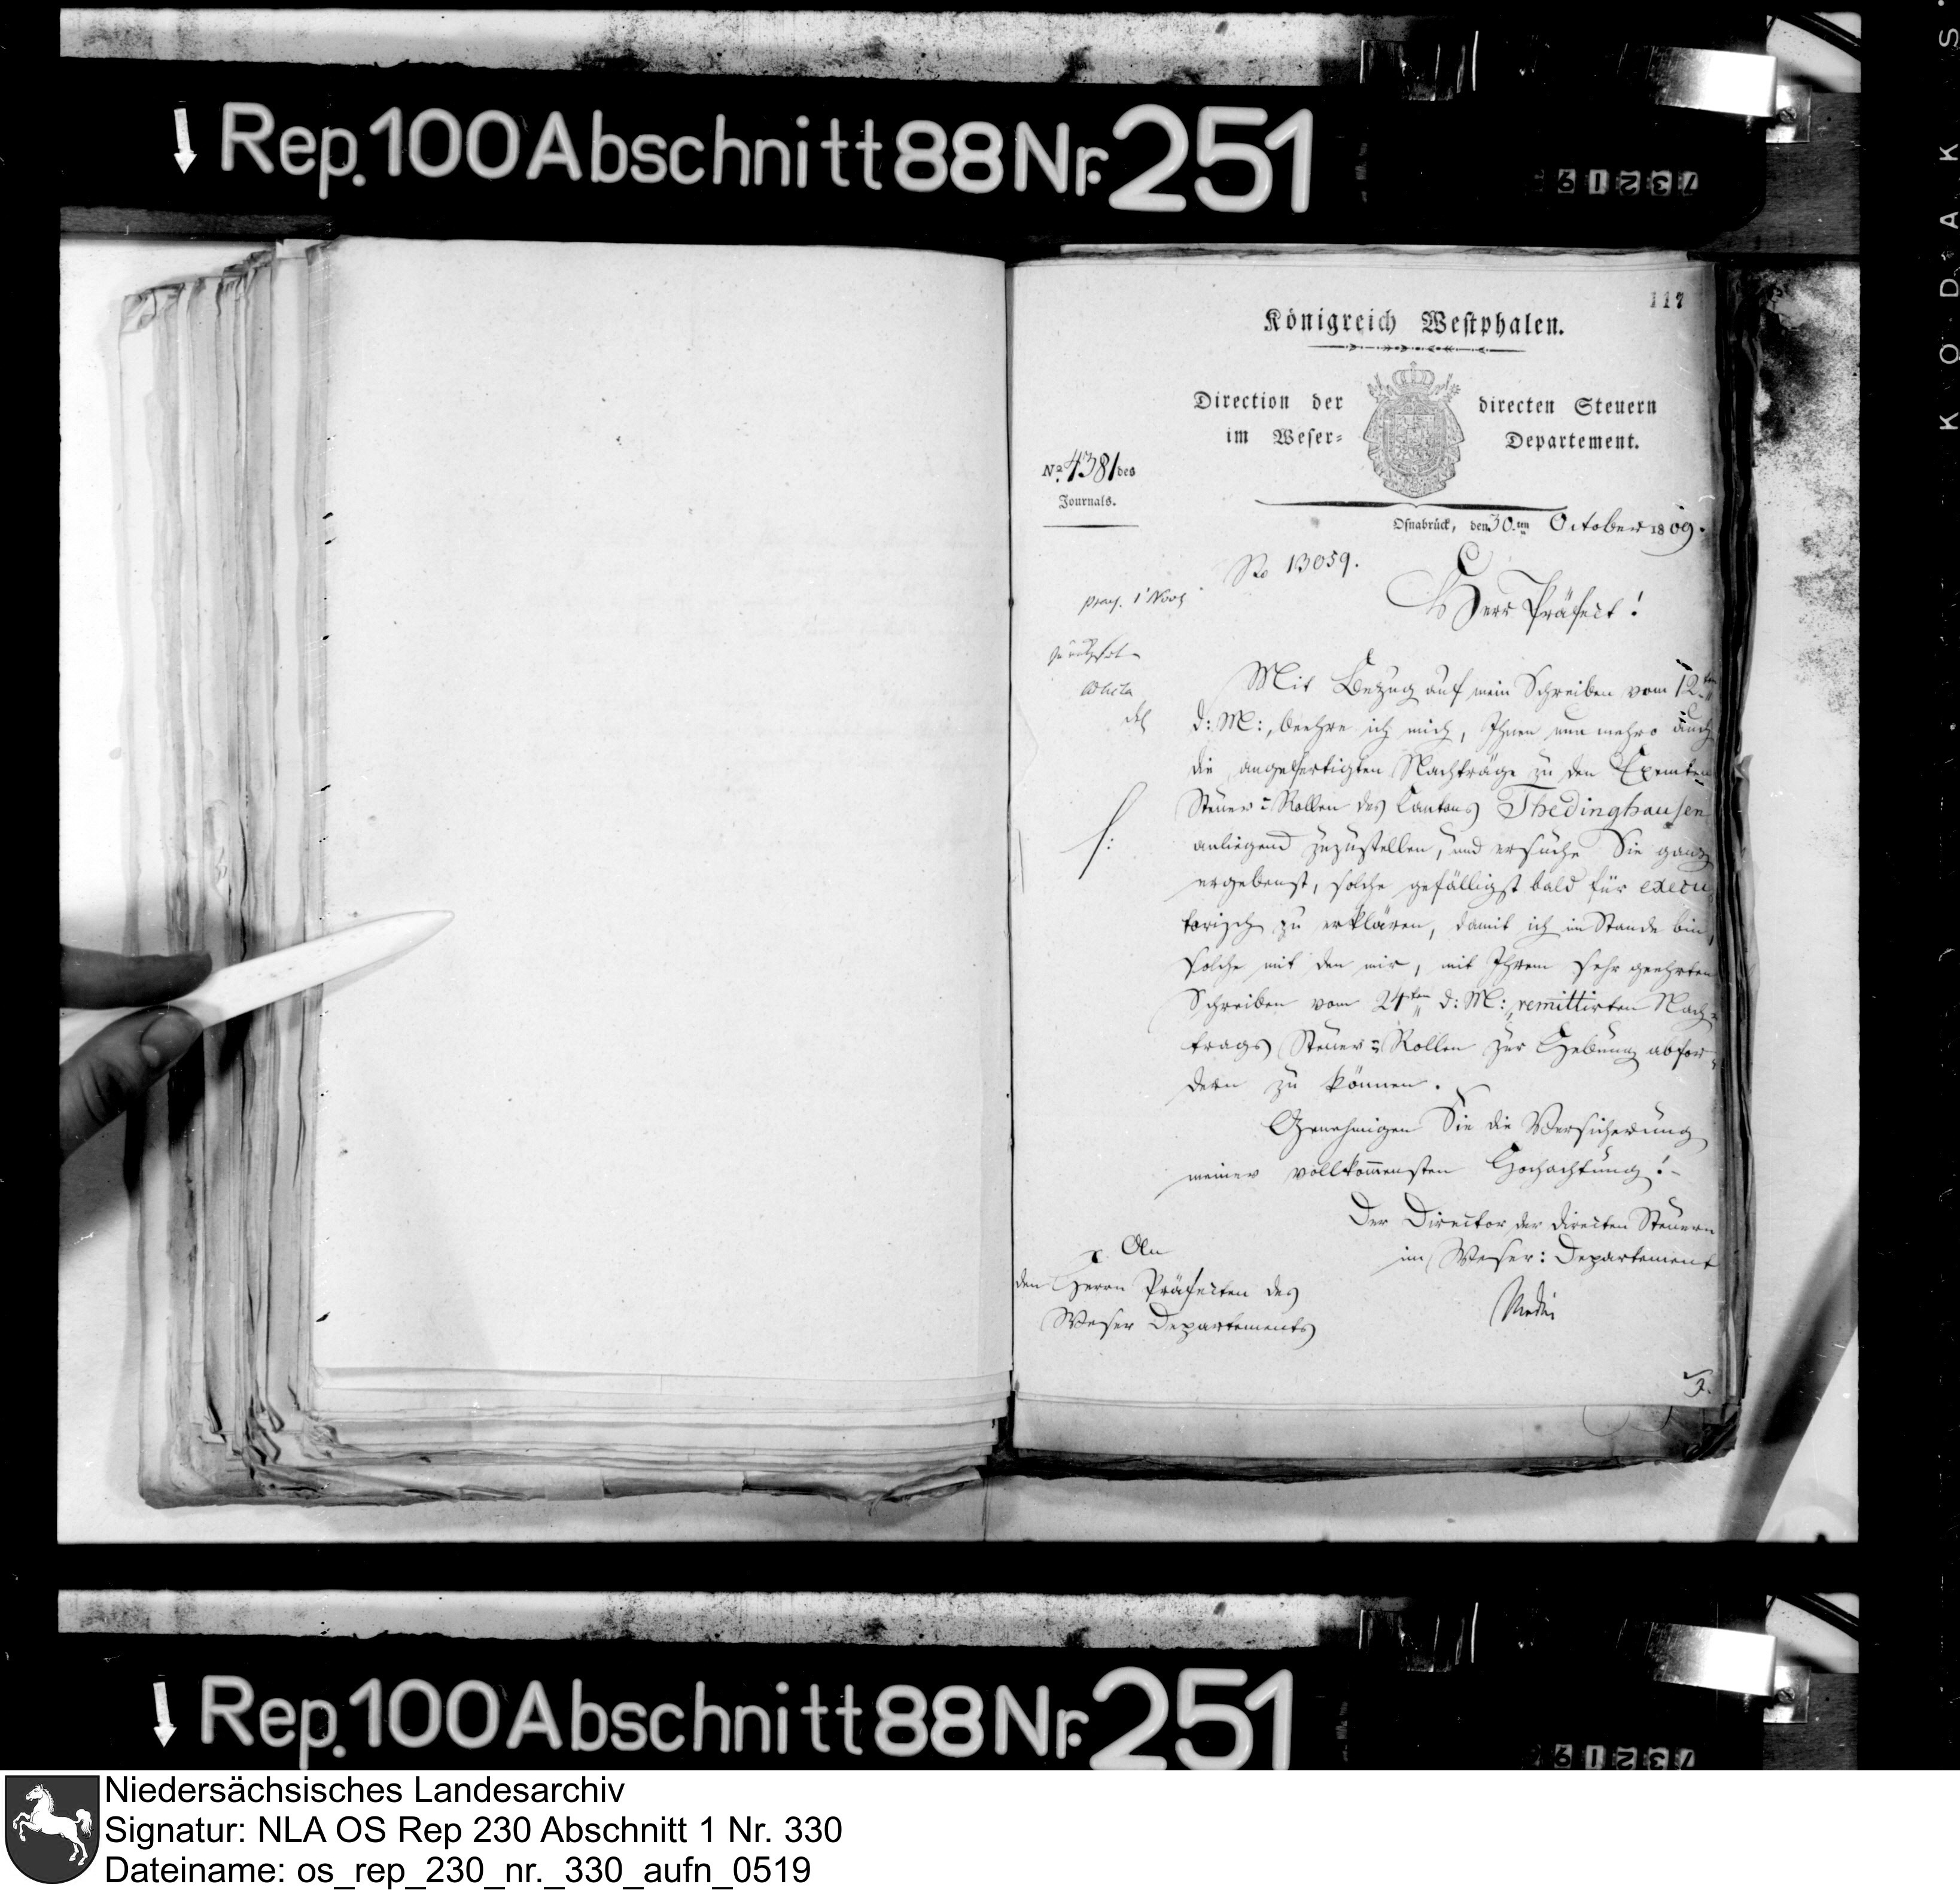 Rep. 100 Abschnitt 88 Nr. 251
73219
117
Königreich Westphalen.
Direction der directen Steuern
im Weser- Departement.
No. 4381 des
Journals.
Osnabrück, den 30.ten October 1809.
No 13059.
Herr Präfect!
Mit Bezug auf mein Schreiben vom 12.ten
d: M:, beehre ich mich, Ihnen nun mehro auch
die angefertigten Nachträge zu den Exemten
Steuer-Rollen des Cantons Thedinghausen
anliegend zuzustellen, und ersuche Sie ganz
ergebenst, solche gefälligst bald für execu
torisch zu erklären, damit ich im Stande bin,
solche mit den mir, mit Ihrem sehr geehrten
Schreiben vom 24ten d: M:, remittirten Nach-
trags Steuer-Rollen zur Hebung abfor-
dern zu können.
Genehmigen Sie die Versicherung
meiner vollkom̄ensten Hochachtung!-
Der Director der directen Steuern
im Weser: Departement
An
den Herrn Präfecten des
Weser Departements
KODAK S
Rep. 100 Abschnitt 88 Nr. 251
73219
Niedersächsisches Landesarchiv
Signatur: NLA OS Rep 230 Abschnitt 1 Nr. 330
Dateiname: os_rep_230_nr._330_aufn_0519